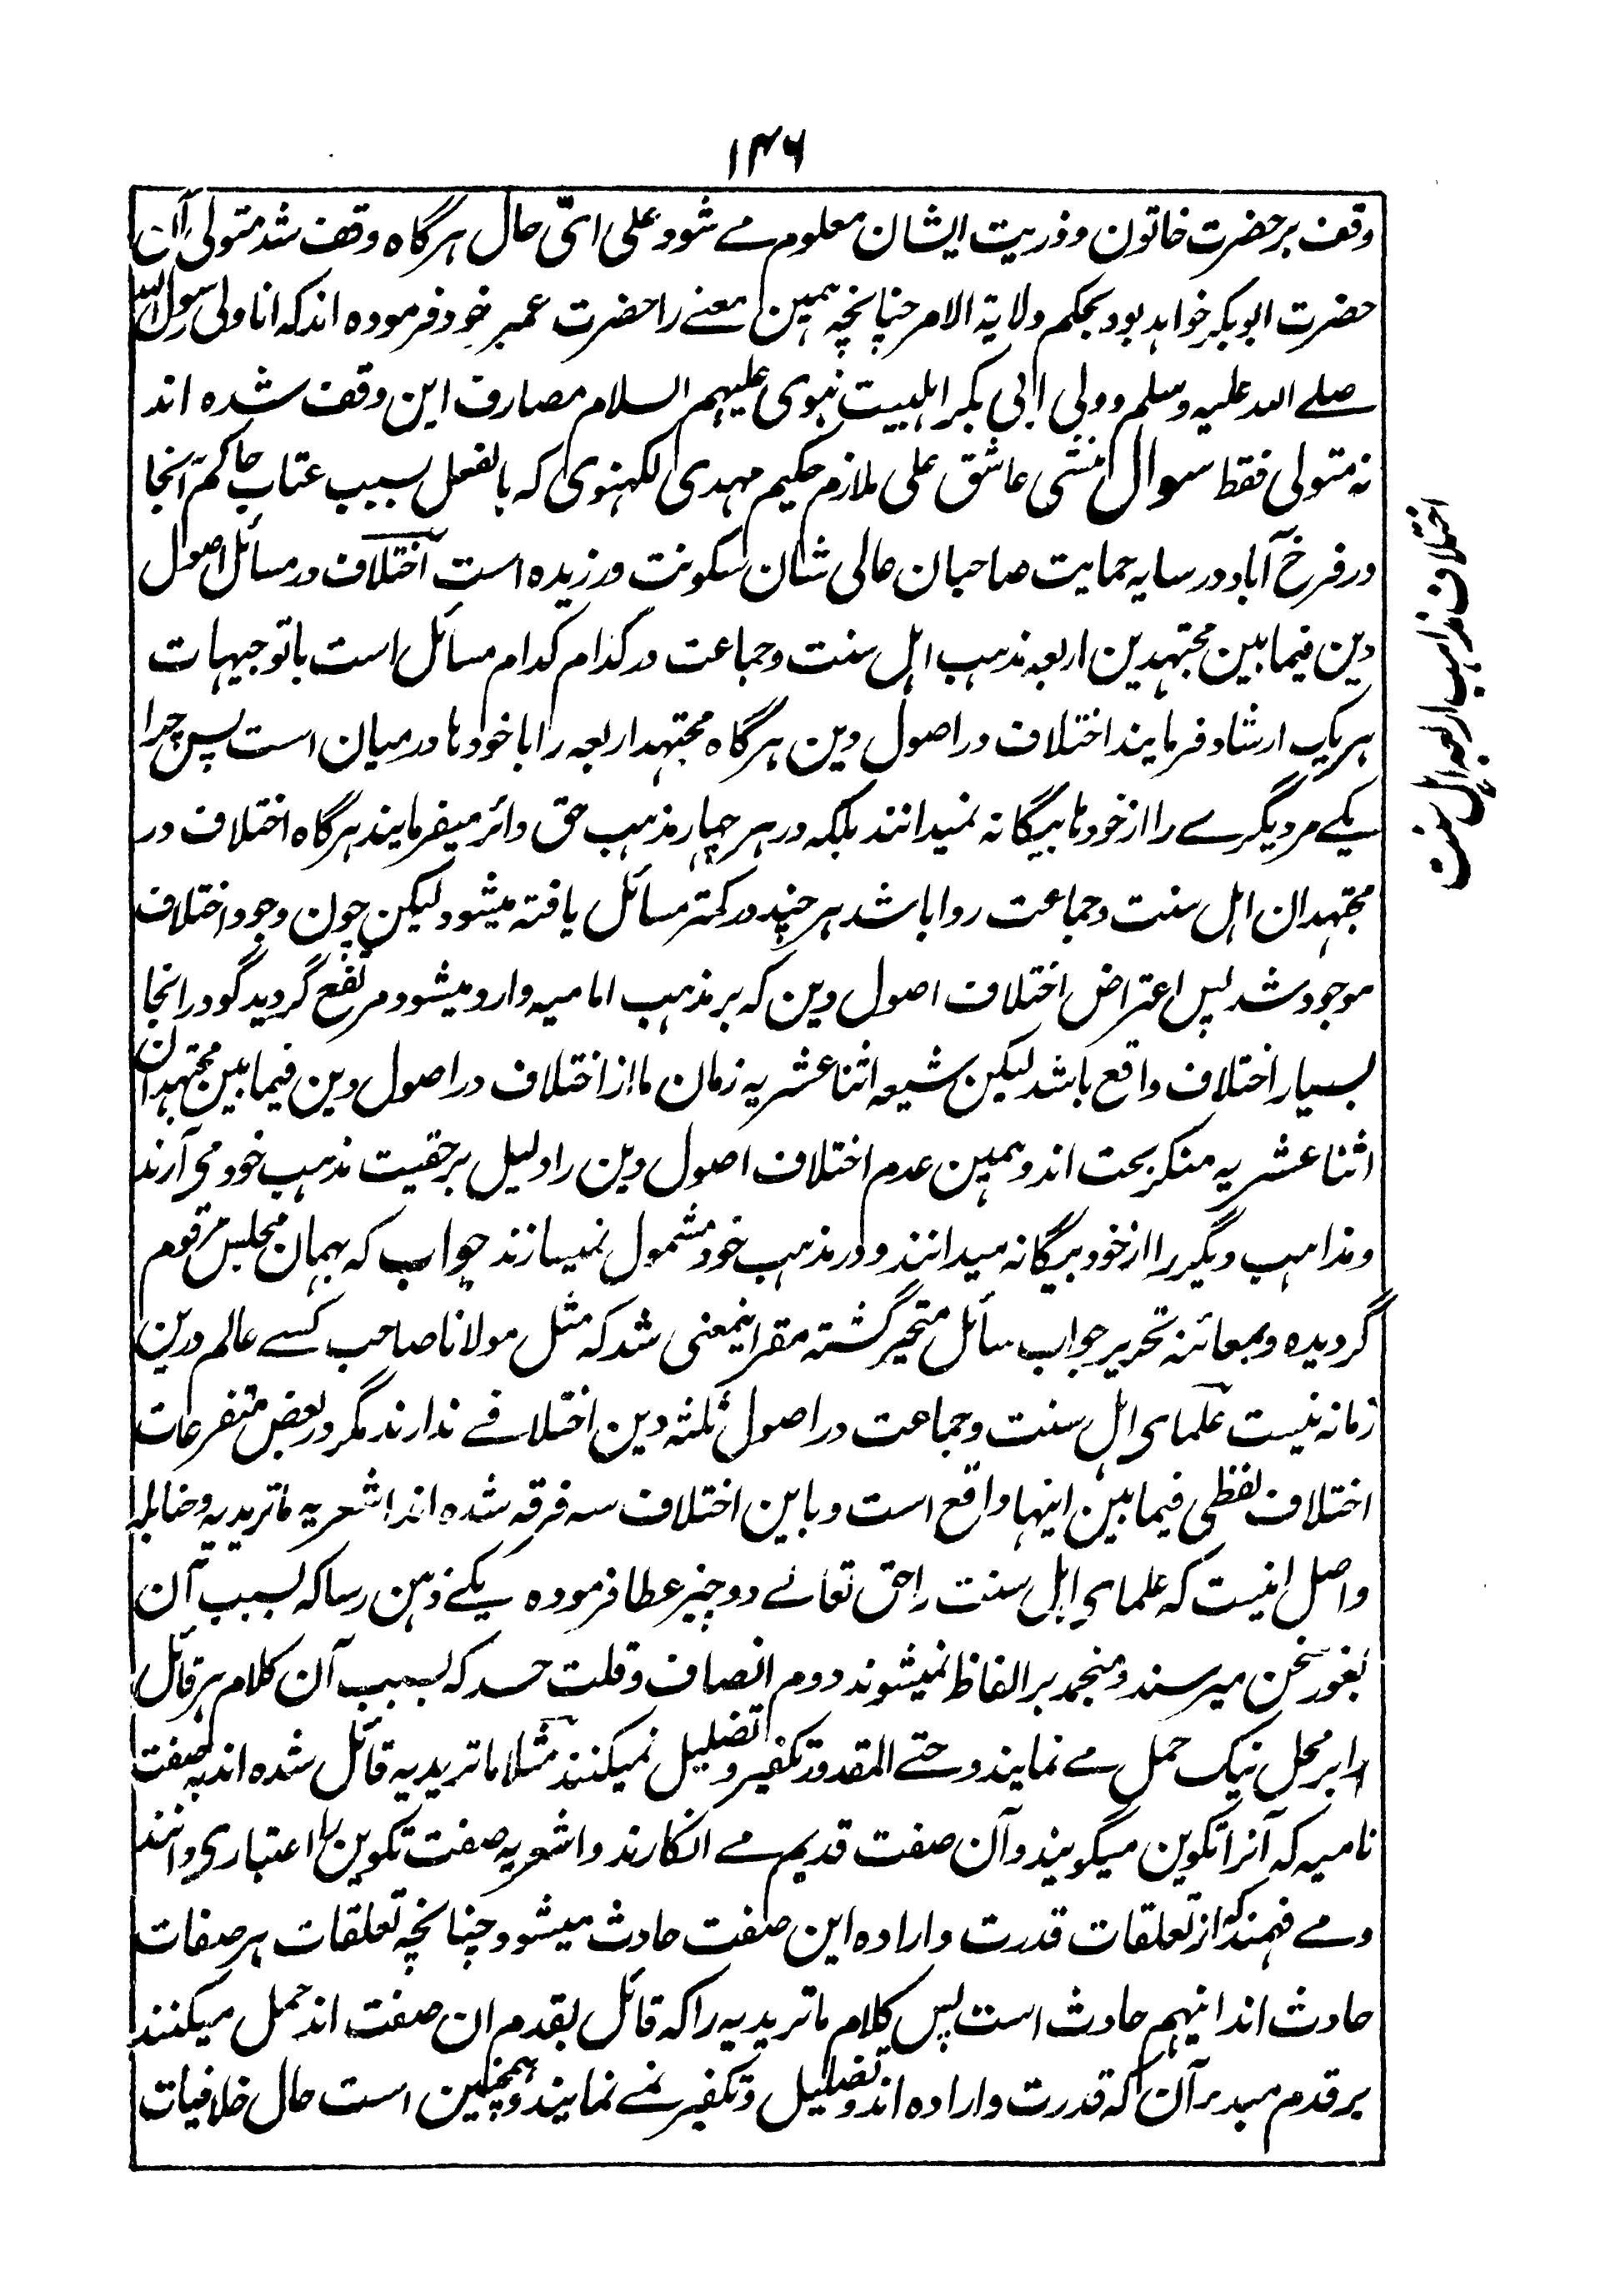 ۱۴۶
وقف بر حضرت خاتون و ذریت ایشان معلوم مے شود علی ایّ حال هرگاه وقف شد متولی آن
حضرت ابوبکر خواهد بود بحکم ولایة الامر چنانچه همین معنے را حضرت عمر خود فرموده اند که انا ولی رسول الله
صلے الله علیه وسلم و ولی ابی بکر اهلبیت نبوی علیهم السلام مصارف این وقف شده اند
نه متولی فقط سوال منشی عاشق علی ملازم حکیم مهدی لکهنوی که بالفعل بسبب عتاب حاکم آنجا
در فرخ آباد در سایه حمایت صاحبان عالی شان سکونت ورزیده است اختلاف در مسائل اصول
دین فیما بین مجتهدین اربعه مذهب اهل سنت و جماعت در کدام کدام مسائل است با توجیهات
هریک ارشاد فرمایند اختلاف در اصول دین هرگاه مجتهد اربعه را با خودها درمیان است پس چرا
یکے مر دیگرے را از خودها بیگانه نمیدانند بلکه در هر چهار مذهب حق دائر میفرمایند هرگاه اختلاف در
مجتهدان اهل سنت و جماعت روا باشد هرچند در کمتر مسائل یافته میشود لیکن چون وجود اختلاف
موجود شد پس اعتراض اختلاف اصول دین که بر مذهب امامیه وارد میشود مرتفع گردید گو در انجا
بسیار اختلاف واقع باشد لیکن شیعه اثنا عشریه زمان ما از اختلاف در اصول دین فیما بین مجتهدان
اثنا عشریه منکر بحت اند و همین عدم اختلاف اصول دین را دلیل بر حقیت مذهب خود می آرند
و مذاهب دیگر را از خود بیگانه میدانند و در مذهب خود مشمول نمیسازند جواب که بهمان مجلس مرقوم
گردیده و بمعائنه تحریر جواب سائل متحیر گشته مقر اینمعنی شد که مثل مولانا صاحب کسے عالم درین
زمانه نیست علمای اهل سنت و جماعت در اصول ثلثه دین اختلافے ندارند مگر در بعض متفرعات
اختلاف لفظی فیما بین اینها واقع است و باین اختلاف سه فرقه شده اند اشعریه ماتریدیه و حنابله
و اصل اینست که علمای اهل سنت را حق تعالے دو چیز عطا فرموده یکے ذهن رسا که بسبب آن
بغور سخن میرسند و منجمد بر الفاظ نمیشوند دوم انصاف و قلت حسد که بسبب آن کلام هر قائل
را بر محل نیک حمل مے نمایند و حتے المقدور تکفیر و تضلیل نمیکنند مثلا ماتریدیه قائل شده اند به صفت
نامیه که آنرا تکوین میگویند و آن صفت قدیم مے انکارند و اشعریه صفت تکوین را اعتباری دانند
و مے فهمند که از تعلقات قدرت و اراده این صفت حادث میشود چنانچه تعلقات هر صفات
حادث اند اینهم حادث است پس کلام ماتریدیه را که قائل بقدم ان صفت اند حمل میکنند
بر قدم مبدر آن که قدرت و اراده اند و تضلیل و تکفیر نمے نمایند و همچنین است حال خلافیات
اختلاف مذاهب اربعه اهل سنت